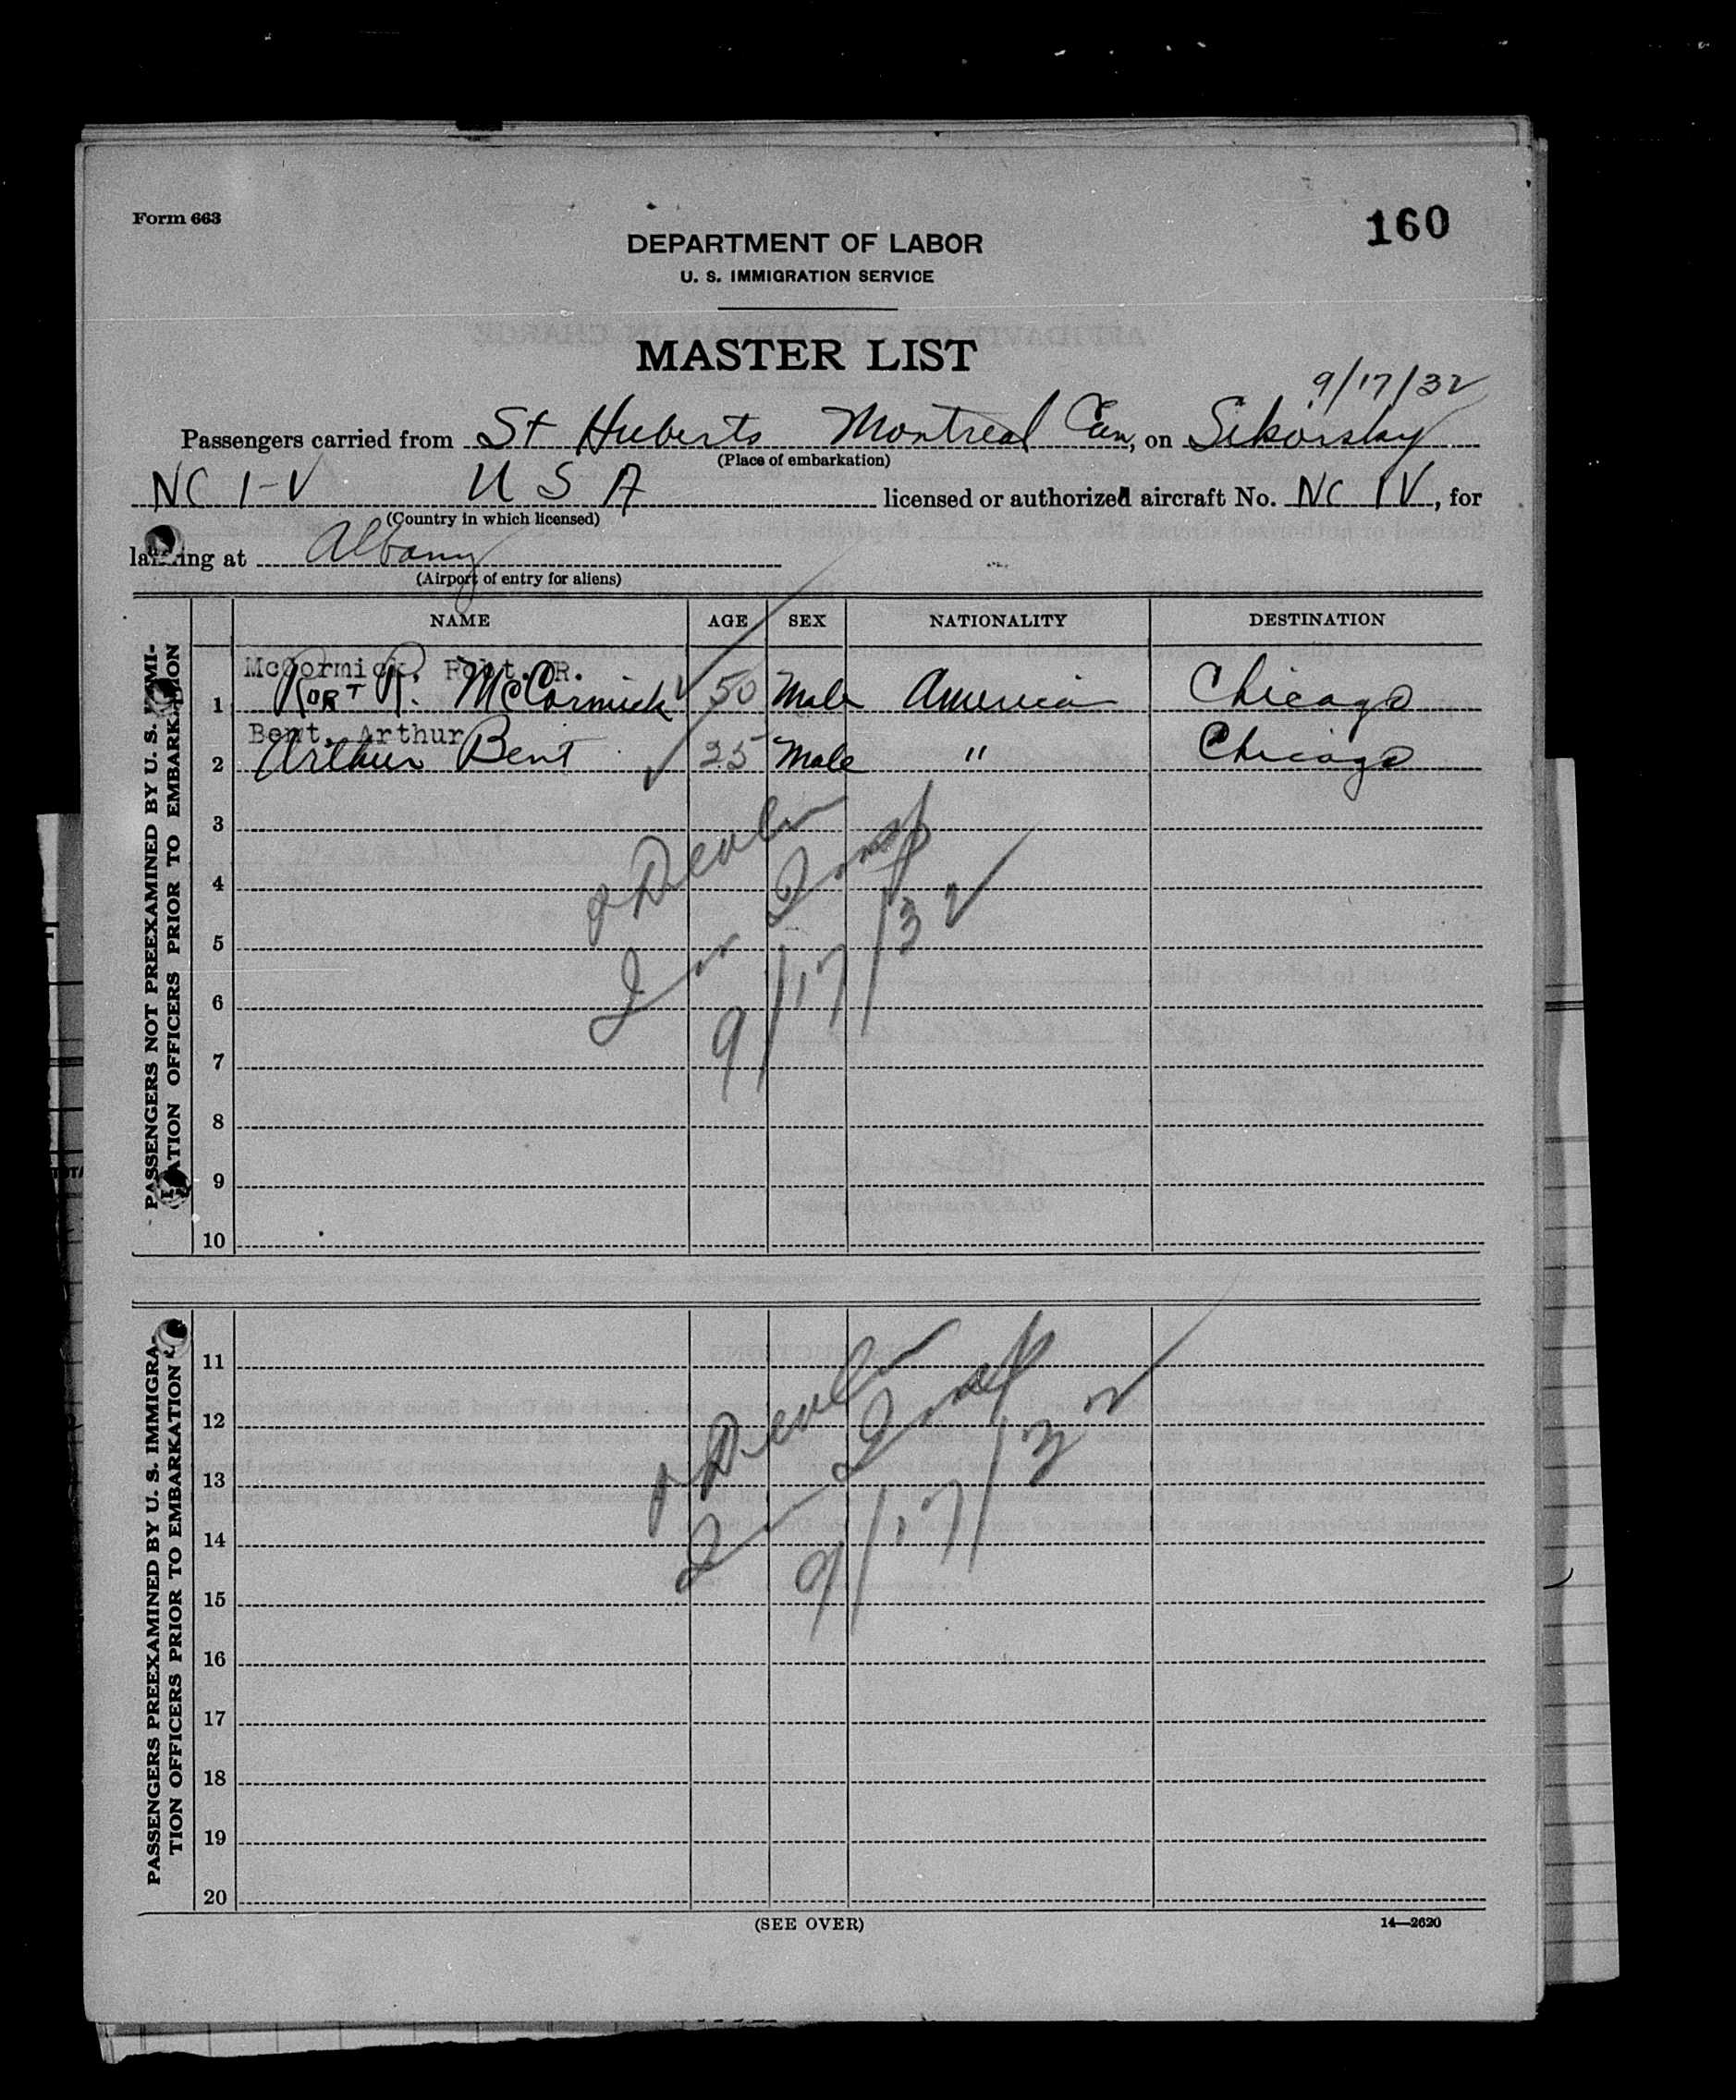 Form 663
160
DEPARTMENT OF LABOR
U. S. IMMIGRATION SERVICE
MASTER LIST
9/17/32
Passengers carried from St Huberts Montreal Can, on Sikorsky
(Place of embarkation)
NC 1-V U S A licensed or authorized aircraft No. NC 1V, for
(Country in which licensed)
landing at Albany
(Airport of entry for aliens)
NAME AGE SEX NATIONALITY DESTINATION
PASSENGERS NOT PREEXAMINED BY U. S. IMMI-
GRATION OFFICERS PRIOR TO EMBARKATION
McCormick, Robt. R.
1 Robt R. McCormick 50 Male American Chicago
Bent, Arthur
2 Arthur Bent 25 Male " Chicago
3
4
5
6
7
8
9
10
9/17/32
PASSENGERS PREEXAMINED BY U. S. IMMIGRA-
TION OFFICERS PRIOR TO EMBARKATION
11
12
13
14
15
16
17
18
19
20
9/17/32
(SEE OVER)
14—2620